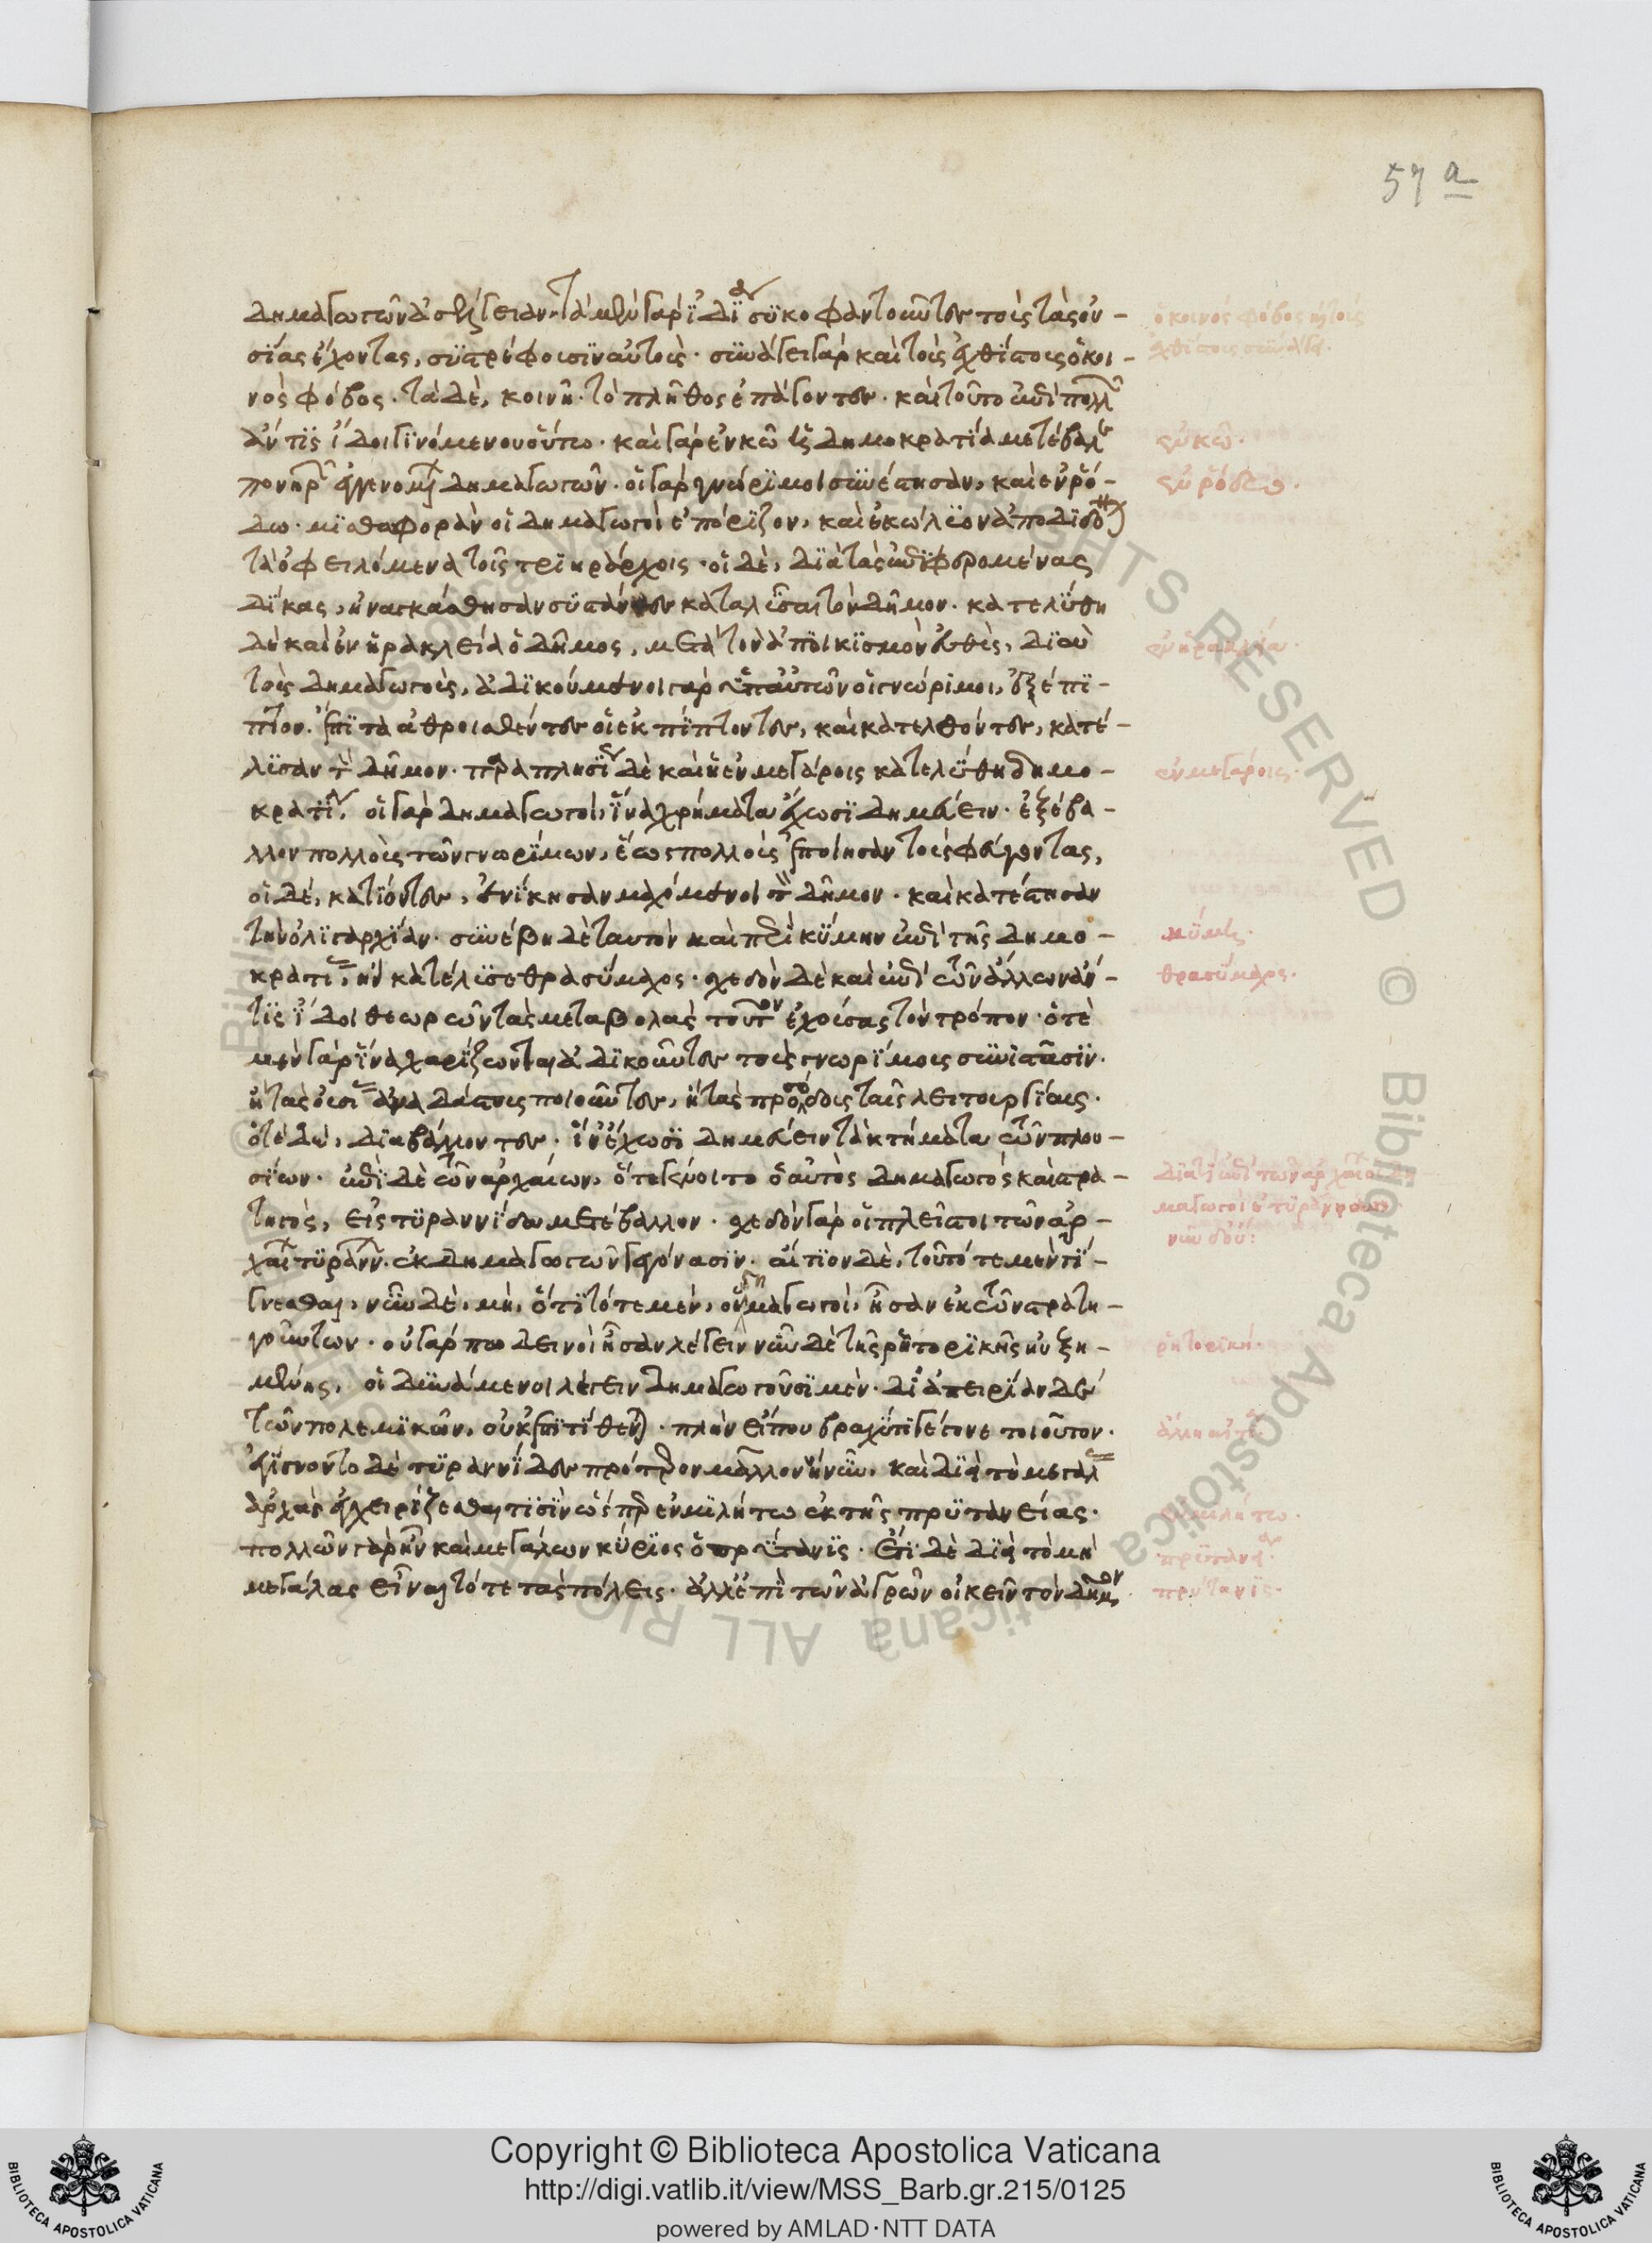 57 a
δημαγωγῶν ἀσέλγειαν. τὰ μὲν γὰρ ἰδίᾳ συκοφαντοῦντων τοὺς τὰς οὐ-
σίας ἔχοντας, συστρέφουσιν αὐτούς· συνάγει γὰρ καὶ τοὺς ἐχθίστους ὁ κοι-
νὸς φόβος. τὰ δὲ, κοινῇ τὸ πλῆθος ἐπάγοντων. καὶ τοῦτο ἐπὶ πολλῶν
ἄν τις ἴδοι γινόμενον οὕτω. καὶ γὰρ ἐν κῷ ἡ δημοκρατία μετέβαλε
πονηρῶν ἐγγενομένων δημαγωγῶν. οἱ γὰρ γνώριμοι συνέστησαν, καὶ ἐν ῥό-
δῳ. μισθοφορὰν οἱ δημαγωγοὶ ἐπόριζον, καὶ ἐκώλυον ἀποδιδόναι
τὰ ὀφειλόμενα τοῖς τριηράρχοις. οἱ δὲ, διὰ τὰς ἐπιφερομένας
δίκας, ἠναγκάσθησαν συστάντων καταλῦσαι τὸν δῆμον. κατελύθη
δὲ καὶ ἐν ἡρακλείᾳ ὁ δῆμος, μετὰ τὸν ἀποικισμὸν εὐθὺς, διὰ
τοὺς δημαγωγούς, ἀδικούμενοι γὰρ ὑπ' αὐτῶν οἱ γνώριμοι, ἐξέπι-
πτον. ἔπειτα ἀθροισθέντων οἱ ἐκπίπτοντων, καὶ κατελθόντων, κατέ-
λυσαν τὸν δῆμον. παραπλησίως δὲ καὶ ἡ ἐν μεγάροις κατελύθη δημο-
κρατία. οἱ γὰρ δημαγωγοὶ, ἵνα χρήματα ἔχωσι δημεύειν. ἐξέβα-
λλον πολλοὺς τῶν γνωρίμων, ἕως πολλοὺς ἐποίησαν τοὺς φεύγοντας,
οἱ δὲ, κατιόντων, ἐνίκησαν μαχόμενοι τὸν δῆμον. καὶ κατέστησαν
τὴν ὀλιγαρχίαν. συνέβη δὲ ταυτὸν καὶ περὶ κύμην ἐπὶ τῆς δημο-
κρατίας, ἣν κατέλυσε θρασύμαχος. σχεδὸν δὲ καὶ ἐπὶ τῶν ἄλλων ἄν
τις ἴδοι θεωρῶν τὰς μεταβολὰς τοῦτον ἐχούσας τὸν τρόπον. ὁτὲ
μὲν γὰρ ἵνα χαρίζωνται ἀδικοῦντων τοὺς γνωρίμους συνιστᾶσιν.
ἢ τὰς οὐσίας ἀναδάστους ποιοῦντων, ἢ τὰς προσόδους ταῖς λειτουργίαις.
ὁτὲ δὲ, διαβάλλοντων. ἵν' ἔχωσι δημεύειν τὰ κτήματα τῶν πλου-
σίων. ἐπὶ δὲ τῶν ἀρχαίων, ὅτε γένοιτο ὁ αὐτὸς δημαγωγὸς καὶ στρα-
τηγός, εἰς τυραννίδα μετέβαλλον. σχεδὸν γὰρ οἱ πλεῖστοι τῶν ἀρ-
χαίων τυράννων ἐκ δημαγωγῶν γεγόνασιν. αἴτιον δὲ, τοῦ τότε μὲν γί-
γνεσθαι, νῦν δὲ, μή, ὅτι τότε μὲν, οἱ δημαγωγοί, ἦσαν ἐκ τῶν στρατη-
γούντων. οὐ γάρ πω δεινοὶ ἦσαν λέγειν νῦν δὲ τῆς ῥητορικῆς ηὐξη-
μένης, οἱ δυνάμενοι λέγειν δημαγωγοῦσι μέν. δι' ἀπειρίαν δὲ
τῶν πολεμικῶν, οὐκ ἐπιτίθενται. πλὴν εἴ που βραχύ τι γέγονε τοιοῦτον.
ἐγίγνοντο δὲ τυραννίδων πρότερον μᾶλλον ἢ νῦν, καὶ διὰ τὸ μεγάλας
ἀρχὰς ἐγχειρίζεσθαί τισιν ὥσπερ ἐν μιλήτῳ ἐκ τῆς πρυτανείας.
πολλῶν γὰρ ἦν καὶ μεγάλων κύριος ὁ πρύτανις. ἔτι δὲ διὰ τὸ μὴ
μεγάλας εἶναι τότε τὰς πόλεις. ἀλλ' ἐπὶ τῶν ἀγρῶν οἰκεῖν τὸν δῆμον
ὁ κοινὸς φόβος καὶ τοὺς
ἐχθίστους συνάγει.
ἐν κῷ.
ἐν ῥόδῳ.
ἐν ἡρακλείᾳ.
ἐν μεγάροις.
κύμης.
θρασύμαχος.
διὰ τί ἐπὶ τῶν ἀρχαίων δη-
μαγωγοὶ ἐτυράννουν
νῦν δ' οὔ:
ῥητορική.
ἐν μιλήτῳ.
πρυτανεία.
πρύτανις.
Copyright © Biblioteca Apostolica Vaticana
http://digi.vatlib.it/view/MSS_Barb.gr.215/0125
powered by AMLAD·NTT DATA